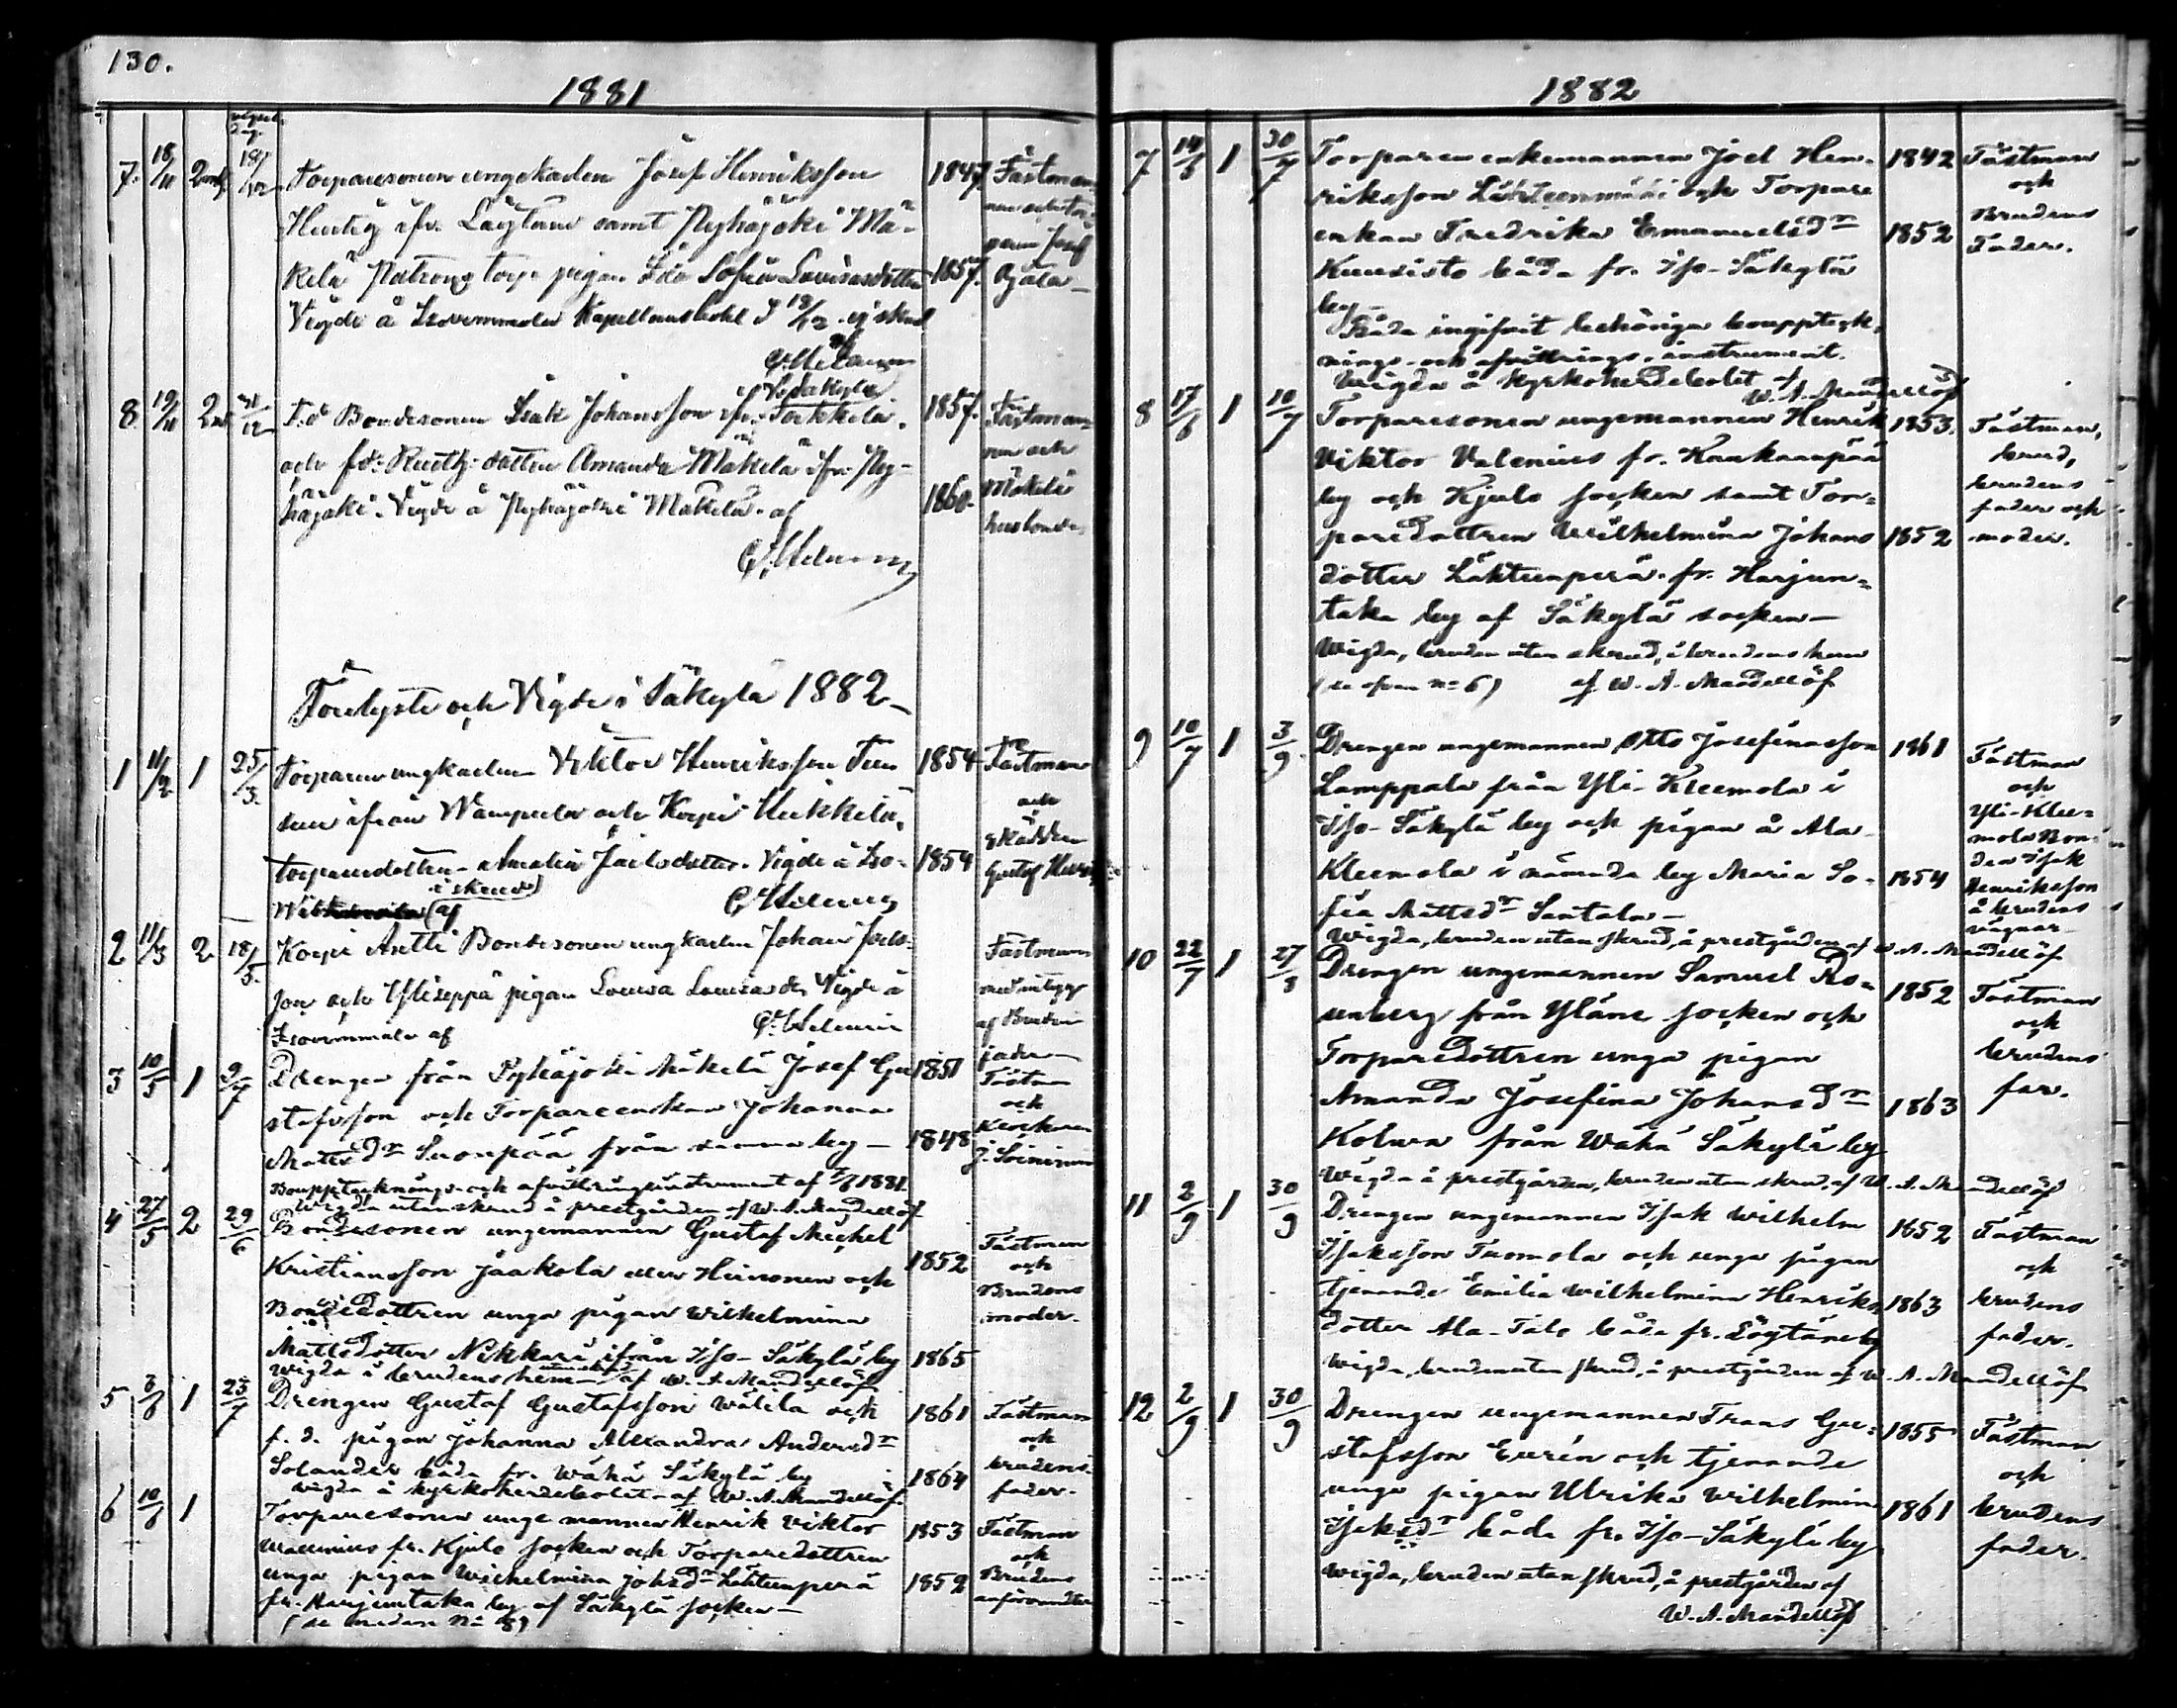 130.
1881
7. 18/11 2 18/12 Torparesonen ungkarlen Josef Henriksson 1847 Fästman
samt Pyhäjoki Mä-
kelä torp pigan Ida Sofia Lovisasdotter 1857.
Vigde å Isovimmala Kapellansbohl d 18/12 af
8 19/11 2 31/12 F.d Bondesonen Isak Johansson ifr. Takkula. 1857. Fästman-
och dotter Amanda Mäkelä ifr. Py- nen och
häjoki. Vigde å Pyhäjoki Mäkelä. af 1860. Mäkelä
Förelyste och Vigde i Säkylä 1882
1 1 25/3. Torparen ungkarlen Viktor Henriksson 1854 Fästman
ifrån Wampula och Korpi Heikkilä, och
torparedotter Amalia dotter. Vigde å Iso- 1854 Gustaf
i skrud af
2 11/3 2 18/5. Korpi Antti Bondesonen ungkarlen Johan Joels- Fästmannen
son och Yliseppä pigan Lovisa Lovisasdr Vigde å
Isovimmala af
3 10/5 1 9/7 Drengen från Pyhäjoki Mäkelä Josef Gu- 1851 Fästman
stafsson och Torpareenkan Johanna och
Matsdr Suonpää från samma by — 1848 Klockaren
Bouppteknings- och afvittringsinstrument af 1881. J. Soininen
Wigda utan skrud å prestgården af W. A. Mandellöf
4 27/5 2 29/6 Bondesonen ungemannen Gustaf Michel Fästman
Kristiansson Jaakola eller Heinonen och 1852 och
Bondedottren unga pigan Wilhelmina Brudens
Mattsdotter Nikkari ifrån Iso-Säkylä by 1865 moder.
wigda i brudens hem utan skrud af W. A. Mandellöf
5 3/6 1 23/7 Drengen Gustaf Gustafsson Wälilä och 1861 Fästman
f. d. pigan Johanna Alexandra Andersdr och
Solander båda fr. Wähä Säkylä by 1864 brudens
wigda å kyrkoherdebolet af W. A. Mandellöf. fader.
6 10/6 1 Torparesonen unge mannen Henrik Viktor 1853 Fästman
Walenius fr. Kjulo socken och Torparedottren och
unga pigan Wilhelmina Johsdr Lähteenperä 1852 Brudens
fr. Harjuntaka by af Säkylä socken — anförvandter
(se nedan No 8)
1882
7 14/6 1 30/7 Torparen enkemannen Joel Hen- 1842 Fästman
riksson Lähteenmäki och Torpare och
enkan Fredrika Emanuelsdr 1852 Brudens
Kuusisto båda fr. Iso-Säkylä Fader.
by —
Båda ingifvit behöriga bouppteck-
nings- och afvittrings-instrument.
Wigda å Kyrkoherdebolet af W. A. Mandellöf
8 17/6 1 10/7 Torparesonen ungemannen Henrik 1853. Fästman,
Viktor Valenius fr. Kaukaanpää brud,
by och Kjulo socken samt Tor- brudens
paredottren Wilhelmina Johans 1852 fader och
dotter Lähteenperä fr. Harjun- moder.
taka by af Säkylä socken —
Wigda, bruden utan skrud, i brudens hem
(se ofvan no 6) af W. A. Mandellöf
9 10/7 1 3/9. Drengen ungemannen Otto Josefinasson 1861 Fästman
Lamppala från Yli-Kleemola i och
Iso-Säkylä by och pigan å Ala- Yli-Klee-
Kleemola i nämnda by Maria So- 1854 mola Bon-
fia Mattsdr Santala — den Isak
Henriksson
å brudens
vägnar
Wigda, bruden utan skrud, å prestgården af W. A. Mandellöf
10 22/7 1 27/8 Drengen ungemannen Samuel Ro- 1852 Fästman
senberg från Yläne socken och och
Torparedottren unga pigan brudens
Amanda Josefina Johansdr 1863 far.
Kolura från Wähä Säkylä by
Wigda å prestgården, bruden utan skrud, af W. A. Mandellöf
11 2/9 1 30/9 Drengen ungemannen Isak Wilhelm 1852 Fästman
Isaksson Tuomola och unga pigan och
tjenande Emilia Wilhelmina Henriks 1863 brudens
dotter Ala-Talo båda fr. Löytäne by fader.
wigda, bruden utan skrud, å prestgården af W. A. Mandellöf
12 2/9 1 30/9 Drengen ungemannen Frans Gu- 1855 Fästman
stafsson Eurén och tjenande och
unga pigan Ulrika Wilhelmina 1861 brudens
Isaksdr båda fr. Iso-Säkylä by fader.
wigda, bruden utan skrud, å prestgården af
W. A. Mandellöf